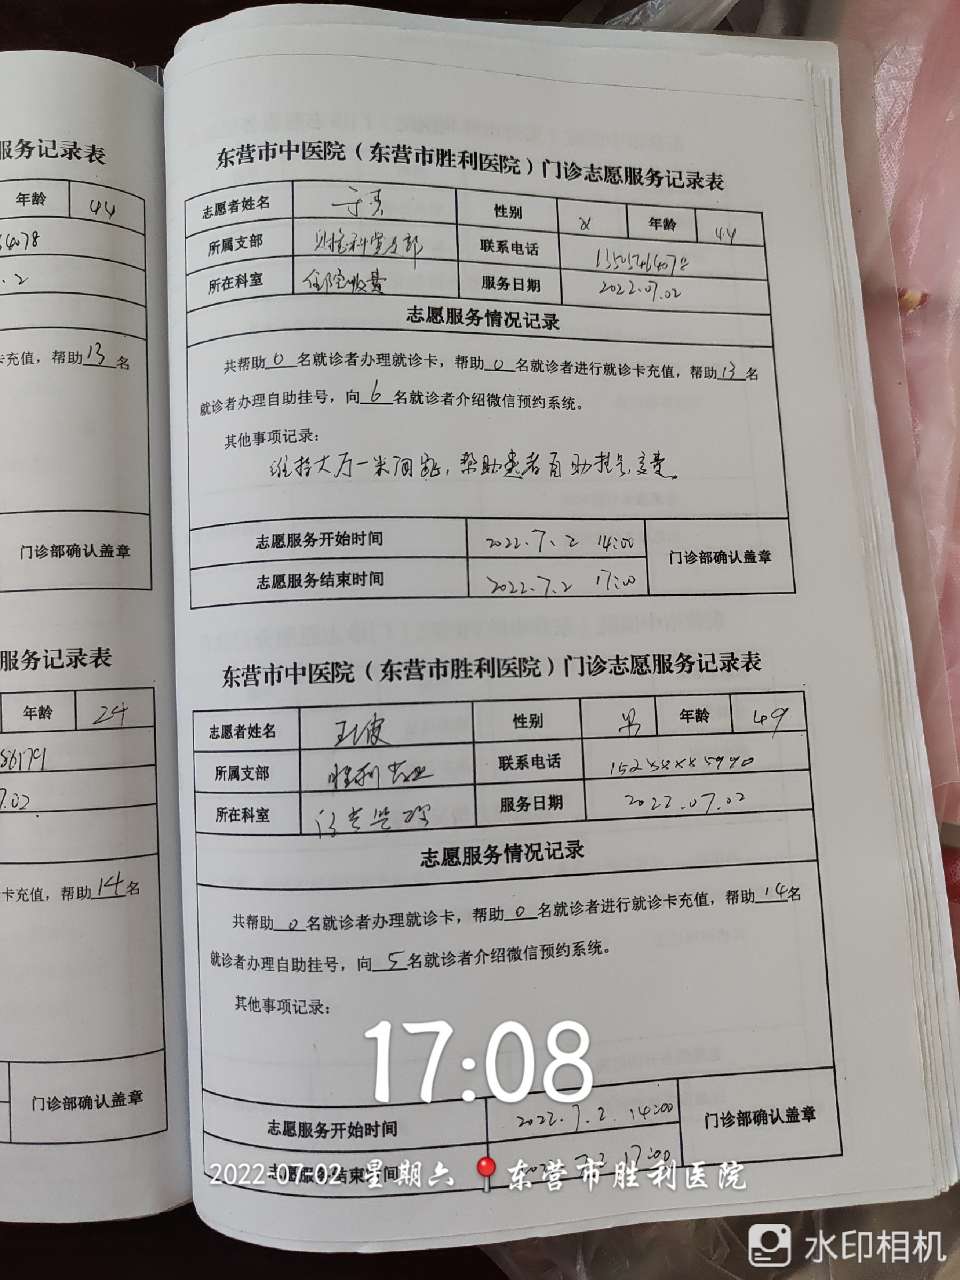 服务记录表
年龄 44
4078
.2
卡充值，帮助13名
门诊部确认盖章
服务记录表
年龄 24
86179
7.02
卡充值，帮助14名
门诊部确认盖章
东营市中医院（东营市胜利医院）门诊志愿服务记录表
志愿者姓名 性别 女 年龄 44
所属支部 财检科室支部 联系电话
所在科室 住院收费 服务日期 2022.07.02
志愿服务情况记录
共帮助0名就诊者办理就诊卡，帮助0名就诊者进行就诊卡充值，帮助13名
就诊者办理自助挂号，向6名就诊者介绍微信预约系统。
其他事项记录：
维持大厅一米间距，帮助患者自助挂号，交费。
志愿服务开始时间 2022.7.2 14:00 门诊部确认盖章
志愿服务结束时间 2022.7.2 17:00
东营市中医院（东营市胜利医院）门诊志愿服务记录表
志愿者姓名 性别 男 年龄 49
所属支部 联系电话
所在科室 服务日期 2022.07.02
志愿服务情况记录
共帮助0名就诊者办理就诊卡，帮助0名就诊者进行就诊卡充值，帮助14名
就诊者办理自助挂号，向5名就诊者介绍微信预约系统。
其他事项记录：
17:08
志愿服务开始时间 2022.7.2 14:00 门诊部确认盖章
志愿服务结束时间 2022.7.2 17:00
2022-07-02 星期六 东营市胜利医院
水印相机